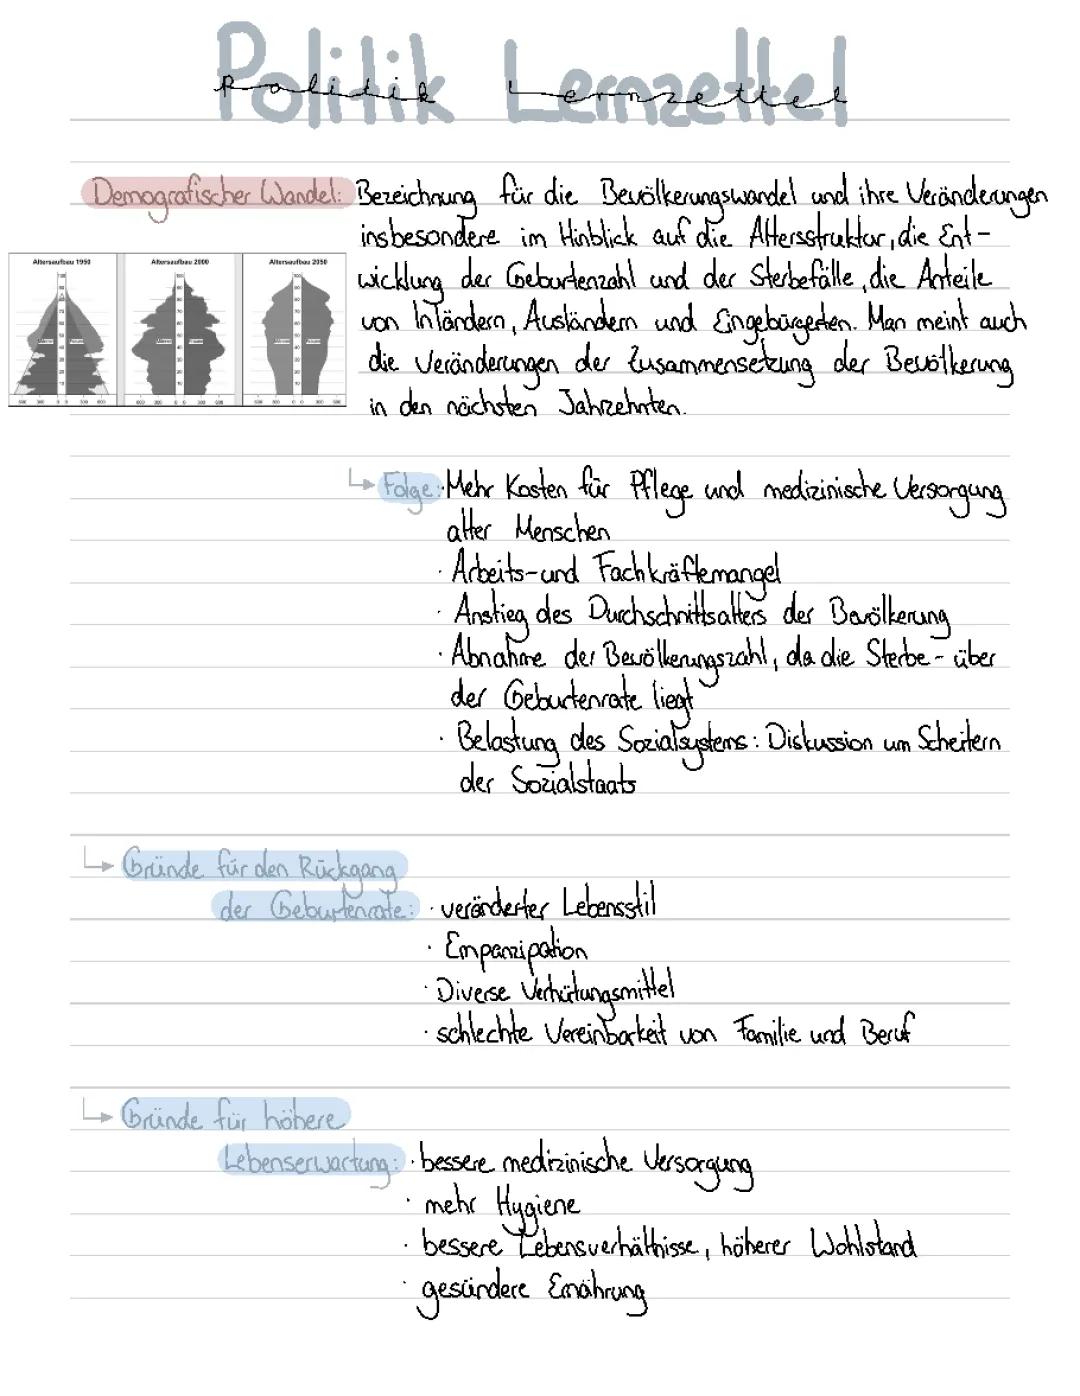 Politik Lernzettel
Politik Lernzettel
Demografischer Wandel: Bezeichnung für die Bevölkerungswandel und ihre Veränderungen
insbesondere im Hinblick auf die Altersstruktur, die Ent-
Altersaufbau 1950 Altersaufbau 2000 Altersaufbau 2050
wicklung der Geburtenzahl und der Sterbefälle, die Anteile
von Inländern, Ausländern und Eingebürgerten. Man meint auch
die Veränderungen der Zusammensetzung der Bevölkerung
in den nächsten Jahrzehnten.
↳ Folge: · Mehr Kosten für Pflege und medizinische Versorgung
alter Menschen
· Arbeits-und Fachkräftemangel
· Anstieg des Durchschnittsalters der Bevölkerung
· Abnahme der Bevölkerungszahl, da die Sterbe- über
der Geburtenrate liegt
· Belastung des Sozialsystems: Diskussion um Scheitern
der Sozialstaats
↳ Gründe für den Rückgang
der Geburtenrate: · veränderter Lebensstil
· Empanzipation
· Diverse Verhütungsmittel
· schlechte Vereinbarkeit von Familie und Beruf
↳ Gründe für höhere
Lebenserwartung: · bessere medizinische Versorgung
· mehr Hygiene
· bessere Lebensverhältnisse, höherer Wohlstand
· gesündere Ernährung